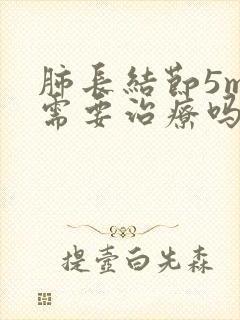 肺長結節5m
需要治療吗
提壺白先森